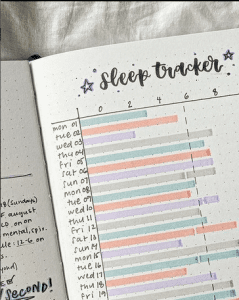 Sleep tracker
0 2 4 6 8
mon 01
tue 02
wed 03
thu 04
fri 05
sat 06
sun 07
mon 08
tue 09
wed 10
thu 11
fri 12
sat 13
sun 14
mon 15
tue 16
wed 17
thu 18
fri 19
august
on on
mental,
12-6 on
SECOND!